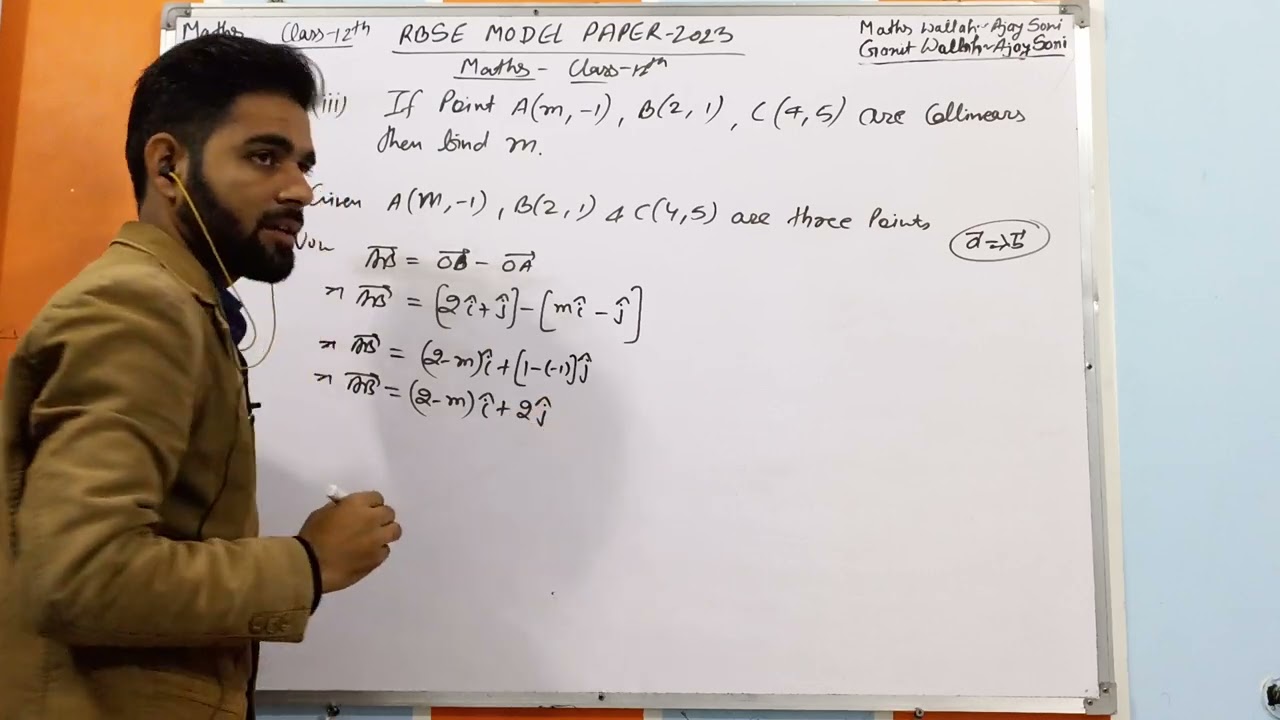 Maths Class-12th RBSE MODEL PAPER-2023 Maths Wallah-Ajay Soni
Ganit Wallah-Ajay Soni
Maths - Class-12th
iii) If Point A(m,-1), B(2,1), C(4,5) are Collinears
then find m.
Given A(m,-1), B(2,1) & C(4,5) are three Points
Now a⃗ = λb⃗
AB⃗ = OB⃗ - OA⃗
⇒ AB⃗ = [2î+ĵ]-[mî-ĵ]
⇒ AB⃗ = (2-m)î+[1-(-1)]ĵ
⇒ AB⃗ = (2-m)î+2ĵ